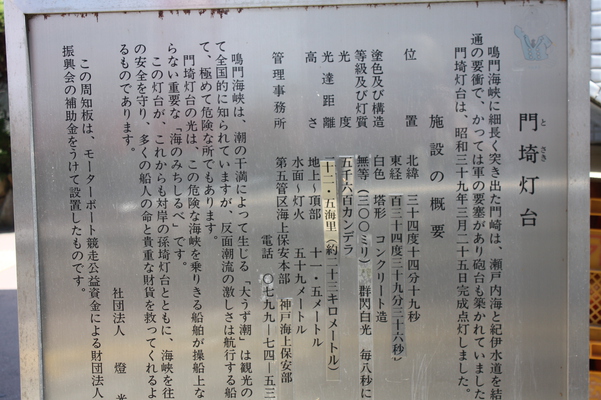 門埼灯台
とさき
鳴門海峡に細長く突き出た門崎は、瀬戸内海と紀伊水道を結
通の要衝で、かっては軍の要塞があり砲台も築かれていました
門埼灯台は、昭和三十九年三月二十五日完成点灯しました。
施設の概要
位置 北緯 三十四度十四分十九秒
東経 百三十四度三十九分三十六秒
塗色及び構造 白色 塔形 コンクリート造
等級及び灯質 無等(三〇〇ミリ) 群閃白光 毎八秒に
光度 五千六百カンデラ
光達距離 十二・五海里(約二十三キロメートル)
高さ 地上〜頂部 十一・五メートル
水面〜灯火 五十九メートル
管理事務所 第五管区海上保安本部 神戸海上保安部
電話 〇七九九―七四―五三
鳴門海峡は、潮の干満によって生じる「大うず潮」は観光の
て全国的に知られていますが、反面潮流の激しさは航行する船
て、極めて危険な所でもあります。
門埼灯台の光は、この危険な海峡を乗りきる船舶が操船上な
らない重要な「海のみちしるべ」です。
この灯台が、これからも対岸の孫埼灯台とともに、海峡を往
の安全を守り、多くの船人の命と貴重な財貨を救ってくれるよ
るものであります。
社団法人 燈光
この周知板は、モーターボート競走公益資金による財団法人
振興会の補助金をうけて設置したものです。